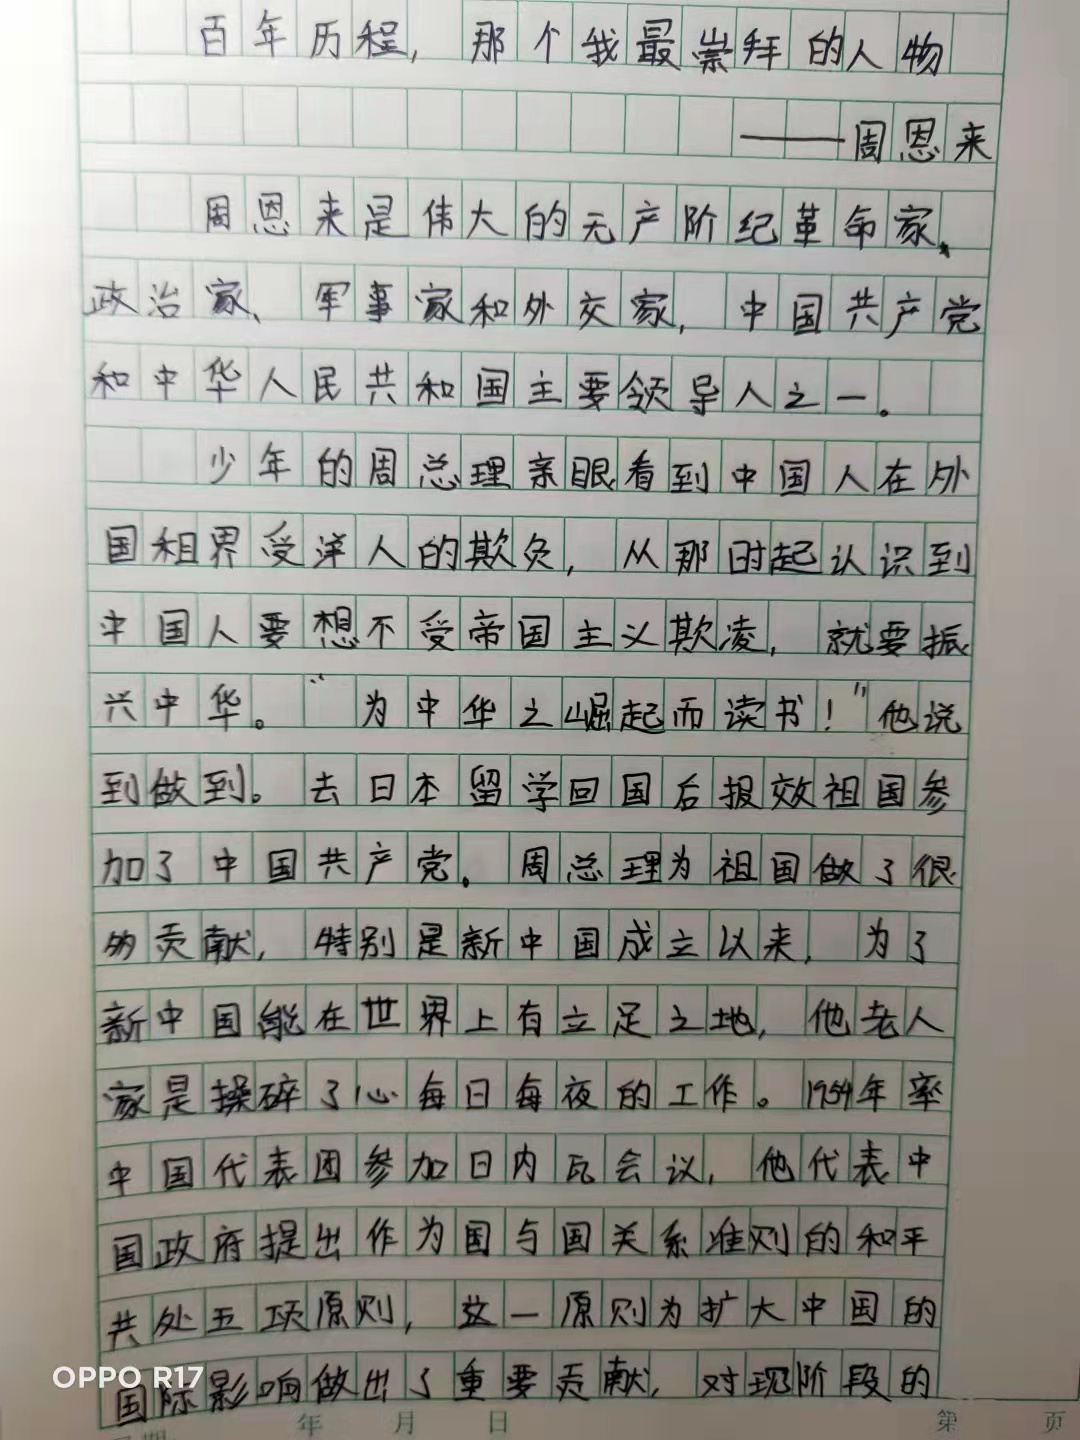 百年历程，那个我最崇拜的人物
——周恩来
周恩来是伟大的无产阶纪革命家、
政治家、军事家和外交家，中国共产党
和中华人民共和国主要领导人之一。
少年的周总理亲眼看到中国人在外
国租界受洋人的欺负，从那时起认识到
中国人要想不受帝国主义欺凌，就要振
兴中华。“为中华之崛起而读书！”他说
到做到。去日本留学回国后报效祖国参
加了中国共产党。周总理为祖国做了很
多贡献，特别是新中国成立以来，为了
新中国能在世界上有立足之地，他老人
家是操碎了心每日每夜的工作。1954年率
中国代表团参加日内瓦会议，他代表中
国政府提出作为国与国关系准则的和平
共处五项原则，这一原则为扩大中国的
国际影响做出了重要贡献，对现阶段的
OPPO R17
年 月 日 第 页